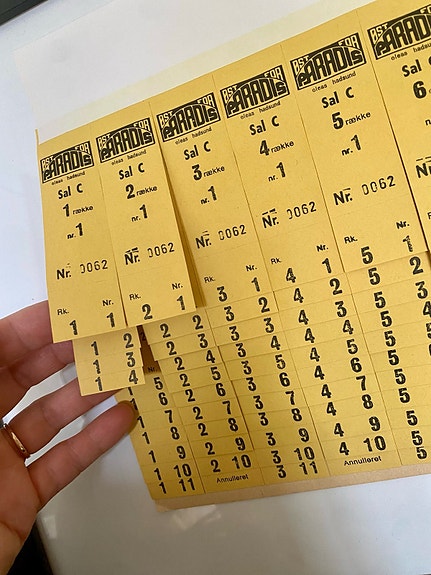 ØST FOR
PARADIS
hadsund
Sal C
1 række
nr. 1
Nr. 0062
Rk. Nr.
1 1
1 2
1 3
1 4
5
6
1 7
1 8
1 9
1 10
1 11
ØST FOR
PARADIS
hadsund
Sal C
2 række
nr. 1
Nr. 0062
Rk. Nr.
2 1
2 2
2 3
2 4
2 5
2 6
2 7
2 8
2 9
2 10
Annulleret
ØST FOR
PARADIS
hadsund
Sal C
3 række
nr. 1
Nr. 0062
3 1
3 2
3 3
3 4
3 5
3 6
3 7
3 8
3 9
3 10
3 11
ØST FOR
PARADIS
hadsund
Sal C
4 række
nr. 1
Nr. 0062
4 1
4 2
4 3
4 4
4 5
4 6
4 7
4 8
4 9
4 10
Annulleret
ØST FOR
PARADIS
hadsund
Sal C
5 række
nr. 1
Nr. 0062
5 1
5 2
5 3
5
5
5
5
5
5
5
ØST FOR
PARADIS
Sal C
6
nr.
Nr.